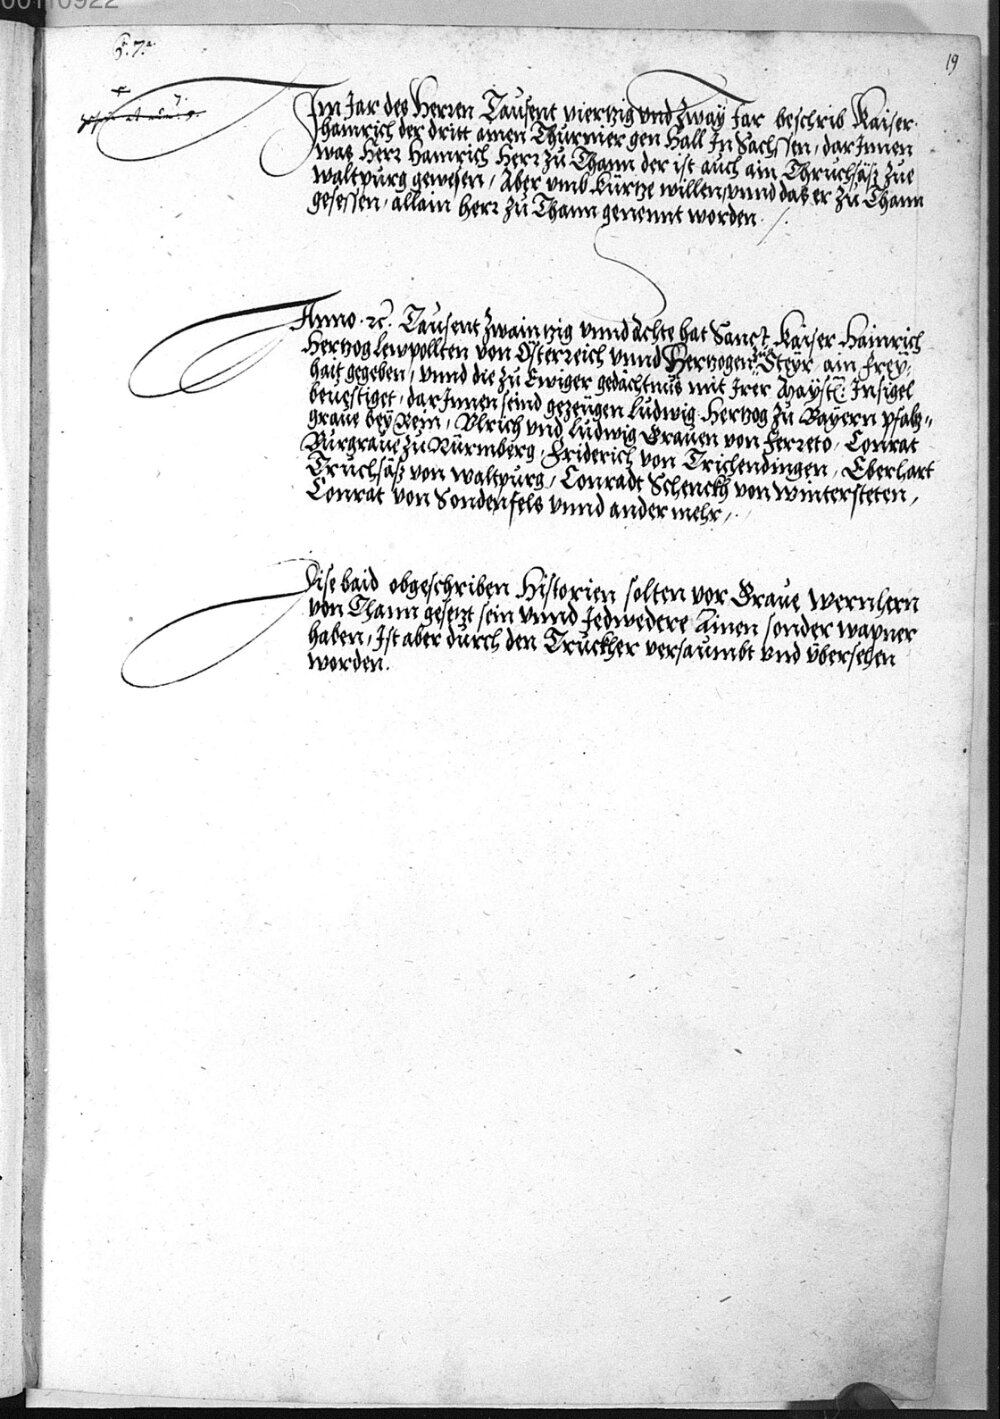 00110922
19
Im Jar des Herren Tausent viertzig vnd zway Jar beschrib Kaiser
Hainrich der dritt ainen Thurnier gen Hall In Sachssen, darInnen
was Herr Hainrich Herr zu Thann der ist auch ain Thruchsäs zue
waltpurg gewesen, Aber vmb kürtze willen, vnnd das er zu Thann
gesessen, allain herr zu Thann genennt worden.
Anno ꝛc. Tausent zwaintzig vnnd achte hat Sanct Kaiser Hainrich
Hertzog Lewpollten von Osterreich vnnd Hertzogen zu Steyr ain frey¬
hait gegeben, vnnd die zu Ewiger gedächtnus mit Irer Mayst: Insigel
beuestiget, darInnen seind gezeugen Ludwig Hertzog zu Bayern pfaltz¬
graue bey Rein, Vlrich vnd Ludwig Grauen von Ferreto, Conrat
Burgraue zu Nürmberg, Friderich von Trichendingen, Eberhart
Truchsäs von waltpurg, Conradt Schenckh von wintersteten,
Conrat von Sondenfels vnnd ander mehr,
Dise baid obgeschriben Historien solten vor Graue wernhern
von Thann gesetzt sein vnnd Jedwedere Ainen sonder wapner
haben, Ist aber durch den Truckher versaumbt vnd übersehen
worden.